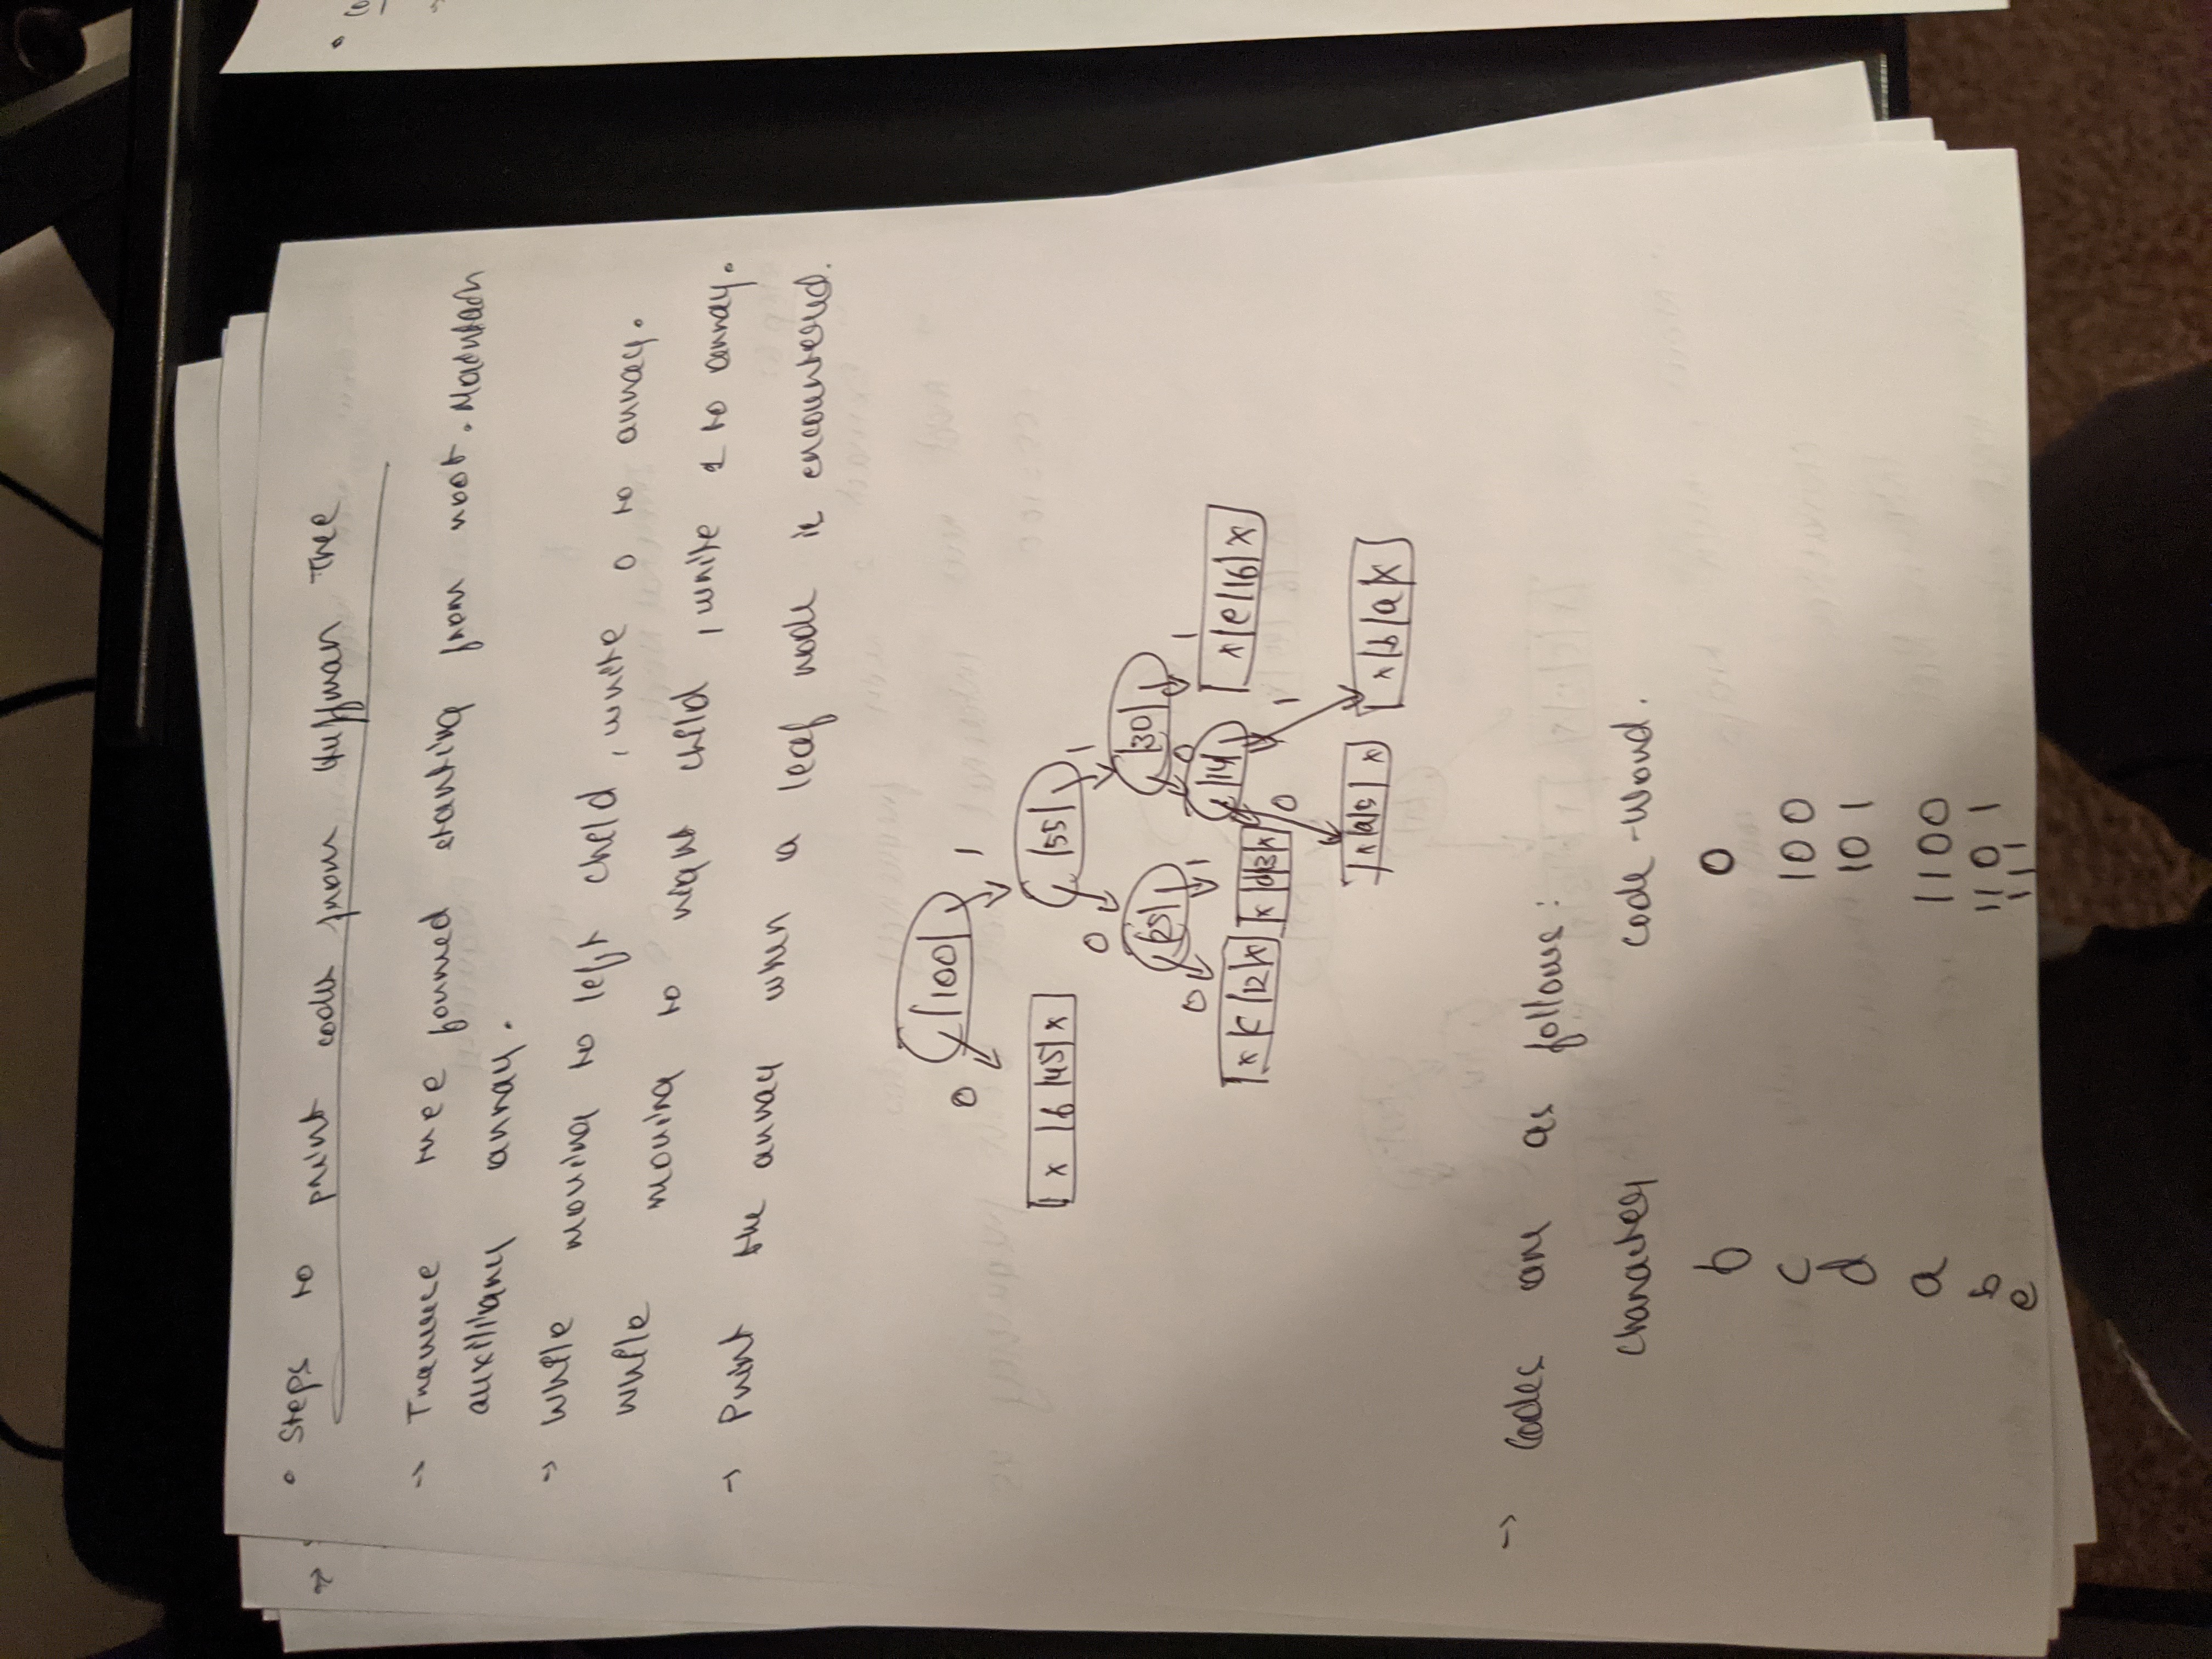 • Steps to print codes from Huffman Tree
→ Traverse tree formed starting from root. Maintain
auxiliary array.
→ While moving to left child, write 0 to array.
while moving to right child, write 1 to array.
→ Print the array when a leaf node is encountered.
100
0 1
x | b | 45 | x
55
0 1
25 30
0 1 0 1
x | c | 12 | x
x | d | 13 | x
14
x | e | 16 | x
0 1
x | a | 5 | x
x | b | a | x
→ Codes are as follows:
character code-word.
b 0
c 100
d 101
a 1100
b 1101
e 111